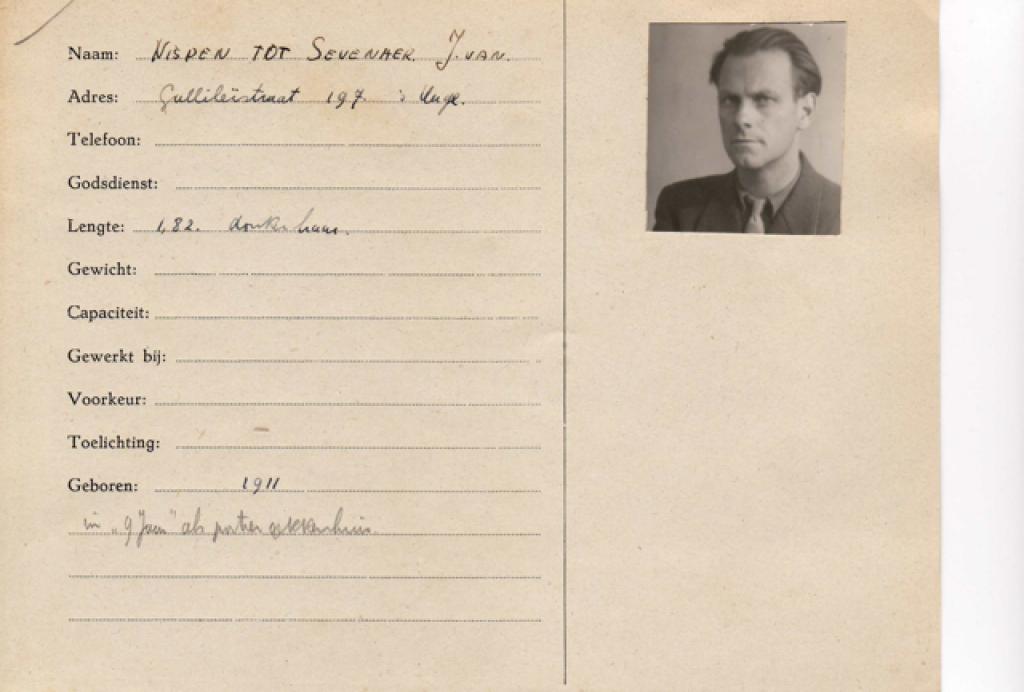 Naam: NISPEN TOT SEVENAER. J. VAN.
Adres: Gallileïstraat 197
Telefoon:
Godsdienst:
Lengte: 1,82. donker haar.
Gewicht:
Capaciteit:
Gewerkt bij:
Voorkeur:
Toelichting:
Geboren: 1911
in „9 Jaar" als portier gekkenhuis.